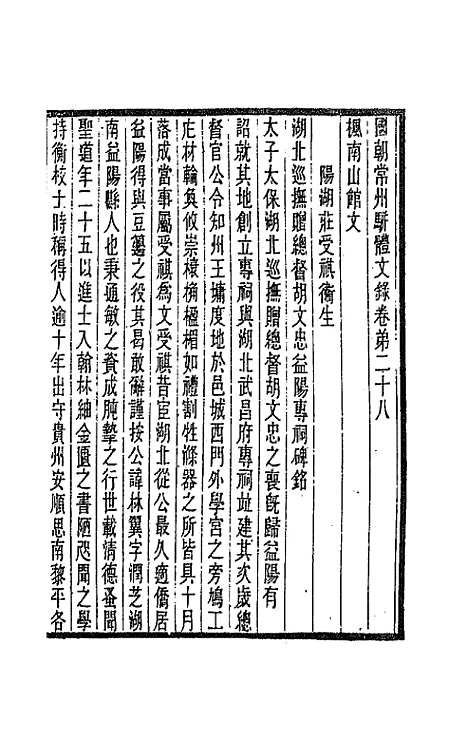 國朝常州駢體文錄卷弟二十八
楓南山館文
陽湖莊受祺衞生
湖北巡撫贈總督胡文忠益陽專祠碑銘
太子太保湖北巡撫贈總督胡文忠之喪旣歸益陽有
詔就其地創立專祠與湖北武昌府專祠竝建其次歲總
督官公令知州王墉度地於邑城西門外學宮之旁鳩工
庀材輪奐攸崇榱桷楹楣如禮割牲滌器之所皆具十月
落成當事屬受祺爲文受祺昔宦湖北從公最久適僑居
益陽得與豆籩之役其曷敢辭謹按公諱林翼字潤芝湖
南益陽縣人也秉通敏之資成肫摯之行世載淸德蚤聞
聖道年二十五以進士入翰林紬金匱之書陋恐聞之學
持衡校士時稱得人逾十年出守貴州安順思南黎平各